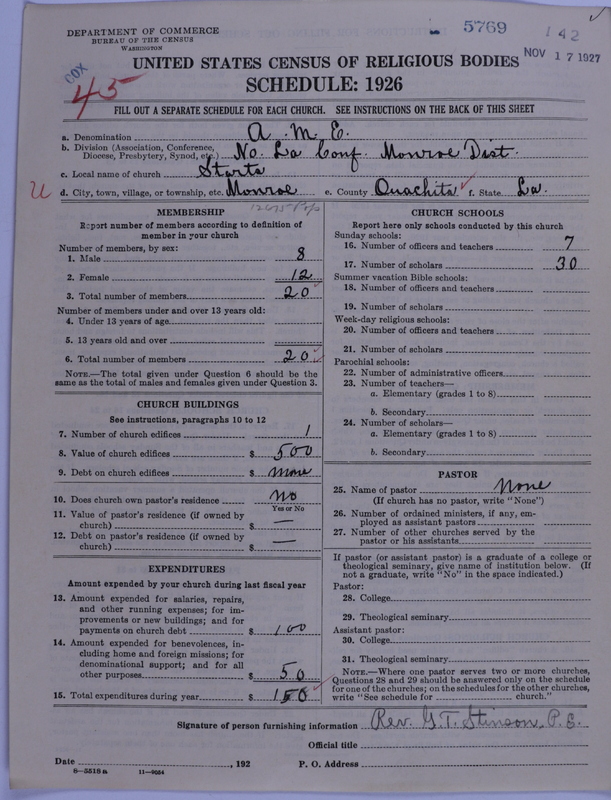 DEPARTMENT OF COMMERCE
BUREAU OF THE CENSUS
WASHINGTON
5769
142
NOV 17 1927
COX
45
UNITED STATES CENSUS OF RELIGIOUS BODIES
SCHEDULE: 1926
FILL OUT A SEPARATE SCHEDULE FOR EACH CHURCH. SEE INSTRUCTIONS ON THE BACK OF THIS SHEET
a. Denomination A. M. E.
b. Division (Association, Conference, Diocese, Presbytery, Synod, etc.) No. La Conf. Monroe Dist.
c. Local name of church Starts
U d. City, town, village, or township, etc. Monroe e. County Ouachita f. State La.
MEMBERSHIP
Report number of members according to definition of
member in your church
Number of members, by sex:
1. Male 8
2. Female 12
3. Total number of members 20
Number of members under and over 13 years old:
4. Under 13 years of age
5. 13 years old and over
6. Total number of members 20
NOTE.—The total given under Question 6 should be
same as the total of males and females given under Question 3.
CHURCH BUILDINGS
See instructions, paragraphs 10 to 12
7. Number of church edifices 1
8. Value of church edifices $ 500
9. Debt on church edifices $ none
10. Does church own pastor's residence No
Yes or No
11. Value of pastor's residence (if owned by
church) $ —
12. Debt on pastor's residence (if owned by
church) $ —
EXPENDITURES
Amount expended by your church during last fiscal year
13. Amount expended for salaries, repairs,
and other running expenses; for im-
provements or new buildings; and for
payments on church debt $ 100
14. Amount expended for benevolences, in-
cluding home and foreign missions; for
denominational support; and for all
other purposes $ 50
15. Total expenditures during year $ 150
CHURCH SCHOOLS
Report here only schools conducted by this church
Sunday schools:
16. Number of officers and teachers 7
17. Number of scholars 30
Summer vacation Bible schools:
18. Number of officers and teachers
19. Number of scholars
Week-day religious schools:
20. Number of officers and teachers
21. Number of scholars
Parochial schools:
22. Number of administrative officers
23. Number of teachers—
a. Elementary (grades 1 to 8)
b. Secondary
24. Number of scholars—
a. Elementary (grades 1 to 8)
b. Secondary
PASTOR
25. Name of pastor None
(If church has no pastor, write "None")
26. Number of ordained ministers, if any, em-
ployed as assistant pastors
27. Number of other churches served by the
pastor or his assistants
If pastor (or assistant pastor) is a graduate of a college or
theological seminary, give name of institution below. (If
not a graduate, write "No" in the space indicated.)
Pastor:
28. College
29. Theological seminary
Assistant pastor:
30. College
31. Theological seminary
NOTE.—Where one pastor serves two or more churches,
Questions 28 and 29 should be answered only on the schedule
for one of the churches; on the schedules for the other churches,
write "See schedule for church."
Signature of person furnishing information Rev. G. T. Stinson, P. E.
Official title
Date , 192 P. O. Address
8—5518a 11—9054